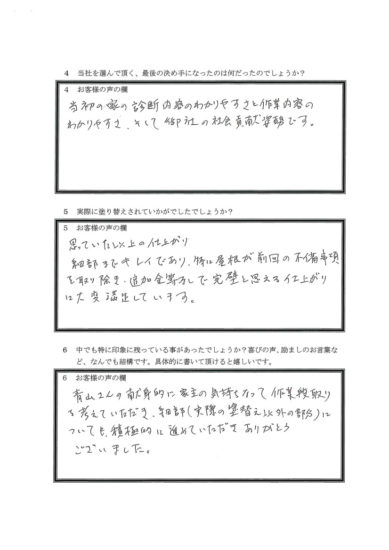 4 当社を選んで頂く、最後の決め手になったのは何だったのでしょうか？
4 お客様の声の欄
当初の家の診断内容のわかりやすさと作業内容の
わかりやすさ、そして御社の社会貢献姿勢です。
5 実際に塗り替えされていかがでしたでしょうか？
5 お客様の声の欄
思っていた以上の仕上がり
細部までキレイであり、特に屋根が前回の不備事項
を取り除き、追加金等なしで完璧と思える仕上がり
は大変満足しています。
6 中でも特に印象に残っている事があったでしょうか？喜びの声、励ましのお言葉な
ど、なんでも結構です。具体的に書いて頂けると嬉しいです。
6 お客様の声の欄
青山さんの献身的に家主の気持ちなって作業段取り
を考えていただき、細部（実際の塗替え以外の部分）に
ついても、積極的に進めていただきありがとう
ございました。